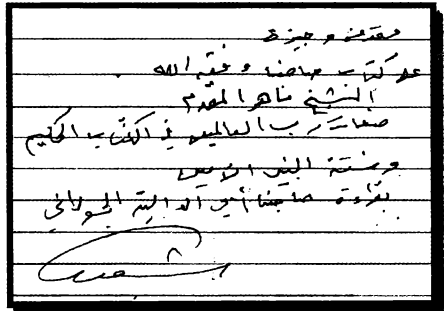 مقدمة وجيزة
على كتاب صاحبنا وفقه الله .
الشيخ ماهر المقدم
صفات رب العالمين في الكتاب الحكيم
وسنة النبي الأمين
بقراءة صاحبنا أبي الدالية الجولاني